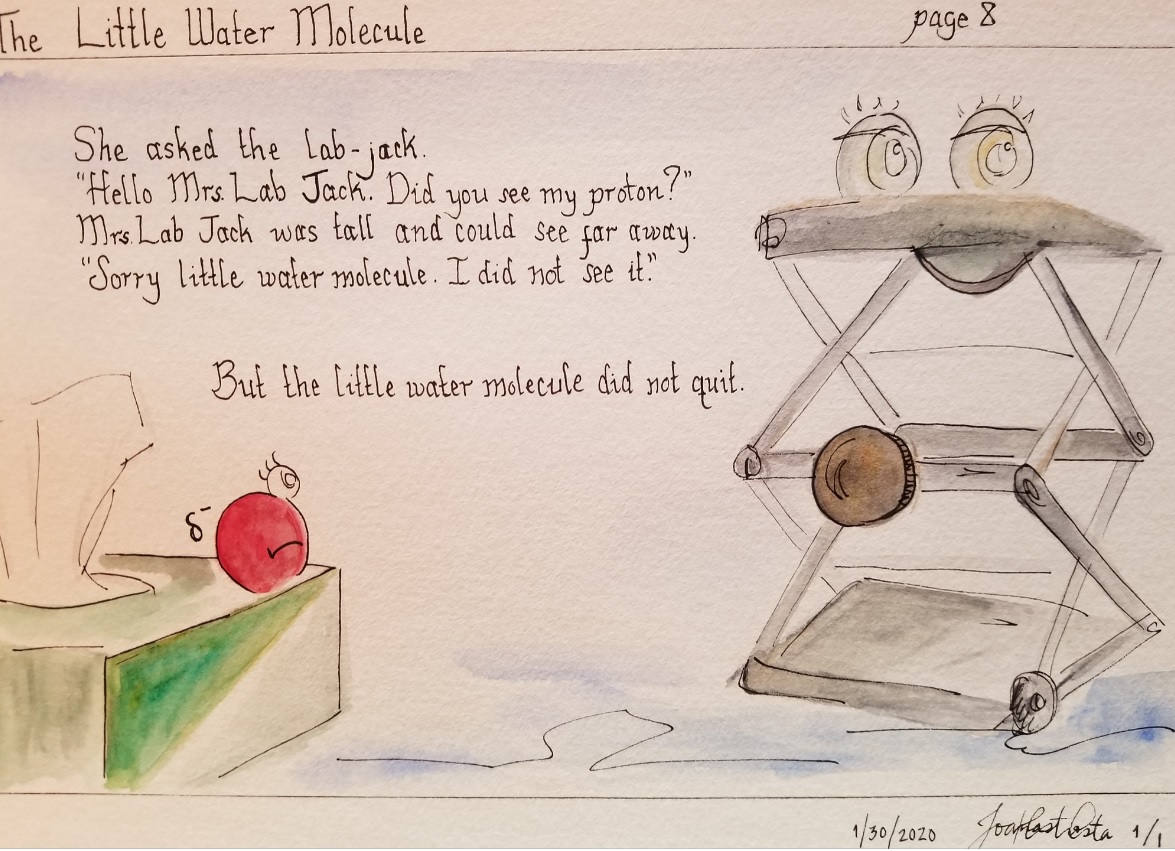 The Little Water Molecule
page 8
She asked the lab-jack.
"Hello Mrs. Lab Jack. Did you see my proton?"
Mrs. Lab Jack was tall and could see far away.
"Sorry little water molecule. I did not see it."
But the little water molecule did not quit.
δ-
1/30/2020
1/1